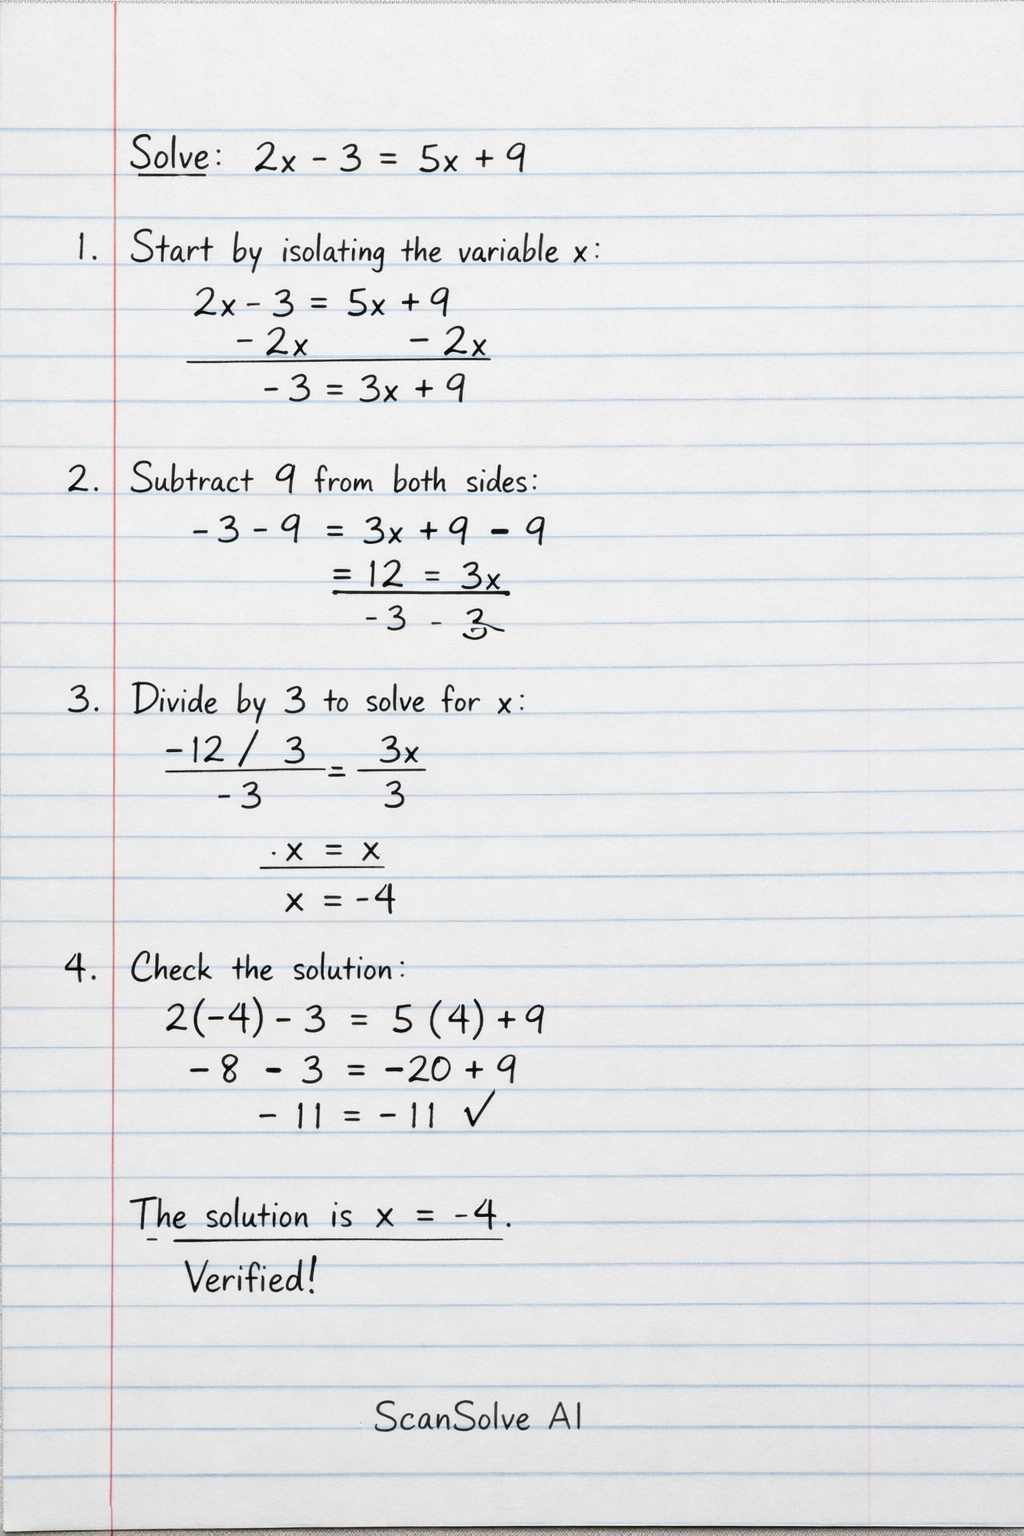 Solve: 2x - 3 = 5x + 9
1. Start by isolating the variable x:
2x - 3 = 5x + 9
- 2x - 2x
-3 = 3x + 9
2. Subtract 9 from both sides:
-3 - 9 = 3x + 9 - 9
= 12 = 3x
-3 - 3
3. Divide by 3 to solve for x:
-12 / 3 = 3x
-3 3
·x = x
x = -4
4. Check the solution:
2(-4) - 3 = 5 (4) + 9
-8 - 3 = -20 + 9
- 11 = - 11 ✓
The solution is x = -4.
Verified!
ScanSolve AI